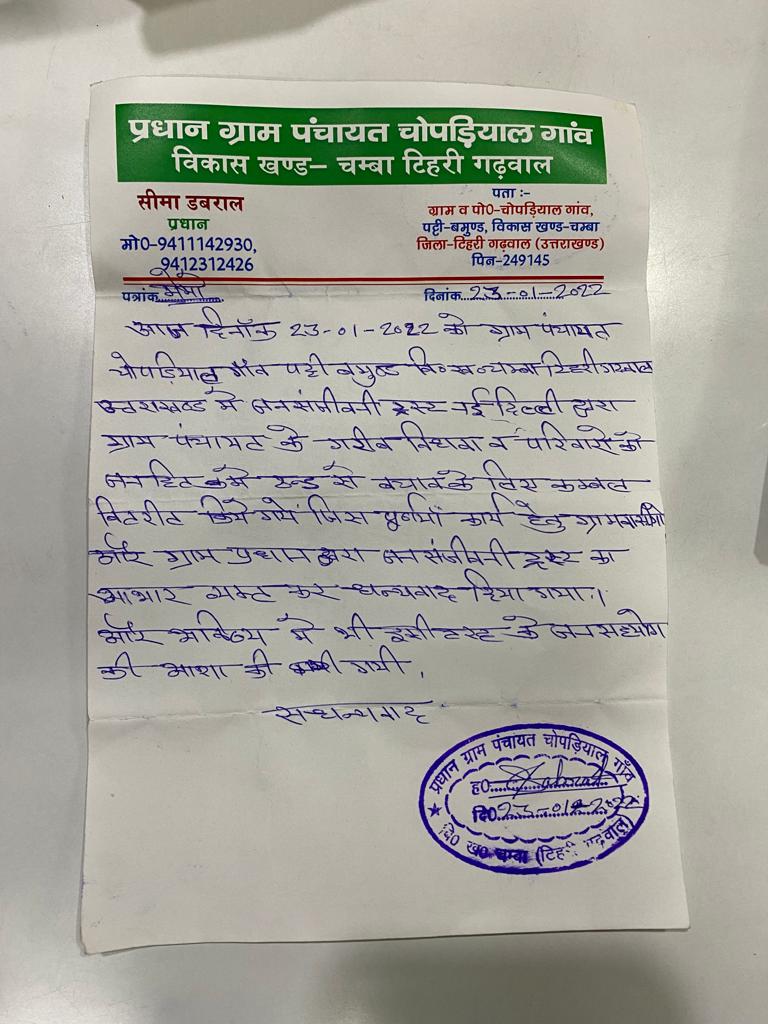 प्रधान ग्राम पंचायत चोपड़ियाल गांव
विकास खण्ड– चम्बा टिहरी गढ़वाल
सीमा डबराल
प्रधान
मो0-9411142930,
9412312426
पता :-
ग्राम व पो0-चोपड़ियाल गांव,
पट्टी-बमुण्ड, विकास खण्ड-चम्बा
जिला-टिहरी गढ़वाल (उत्तराखण्ड)
पिन-249145
पत्रांक मेमो
दिनांक 23-01-2022
आज दिनाँक 23-01-2022 को ग्राम पंचायत
चोपड़ियाल गाँव पट्टी बमुण्ड वि०ख०चम्बा टिहरी गढवाल
उत्तराखण्ड मे जनसंजीवनी ट्रस्ट नई दिल्ली द्वारा
ग्राम पंचायत के गरीब विधवा व परिवारो को
जनहित मे ठन्ड से बचाव के लिए कम्बल
वितरीत किये गये जिस कार्य हेतु ग्रामवासीयो
और ग्राम प्रधान द्वारा जनसंजीवनी ट्रस्ट का
आभार व्यक्त कर धन्यवाद दिया गया।
और भविष्य मे भी इसी ट्रस्ट के जनसहयोग
की आशा की गयी।
सधन्यवाद
प्रधान ग्राम पंचायत चोपड़ियाल गाँव
ह0
दि0 23-01-2022
वि0 ख0 चम्बा (टिहरी गढ़वाल)